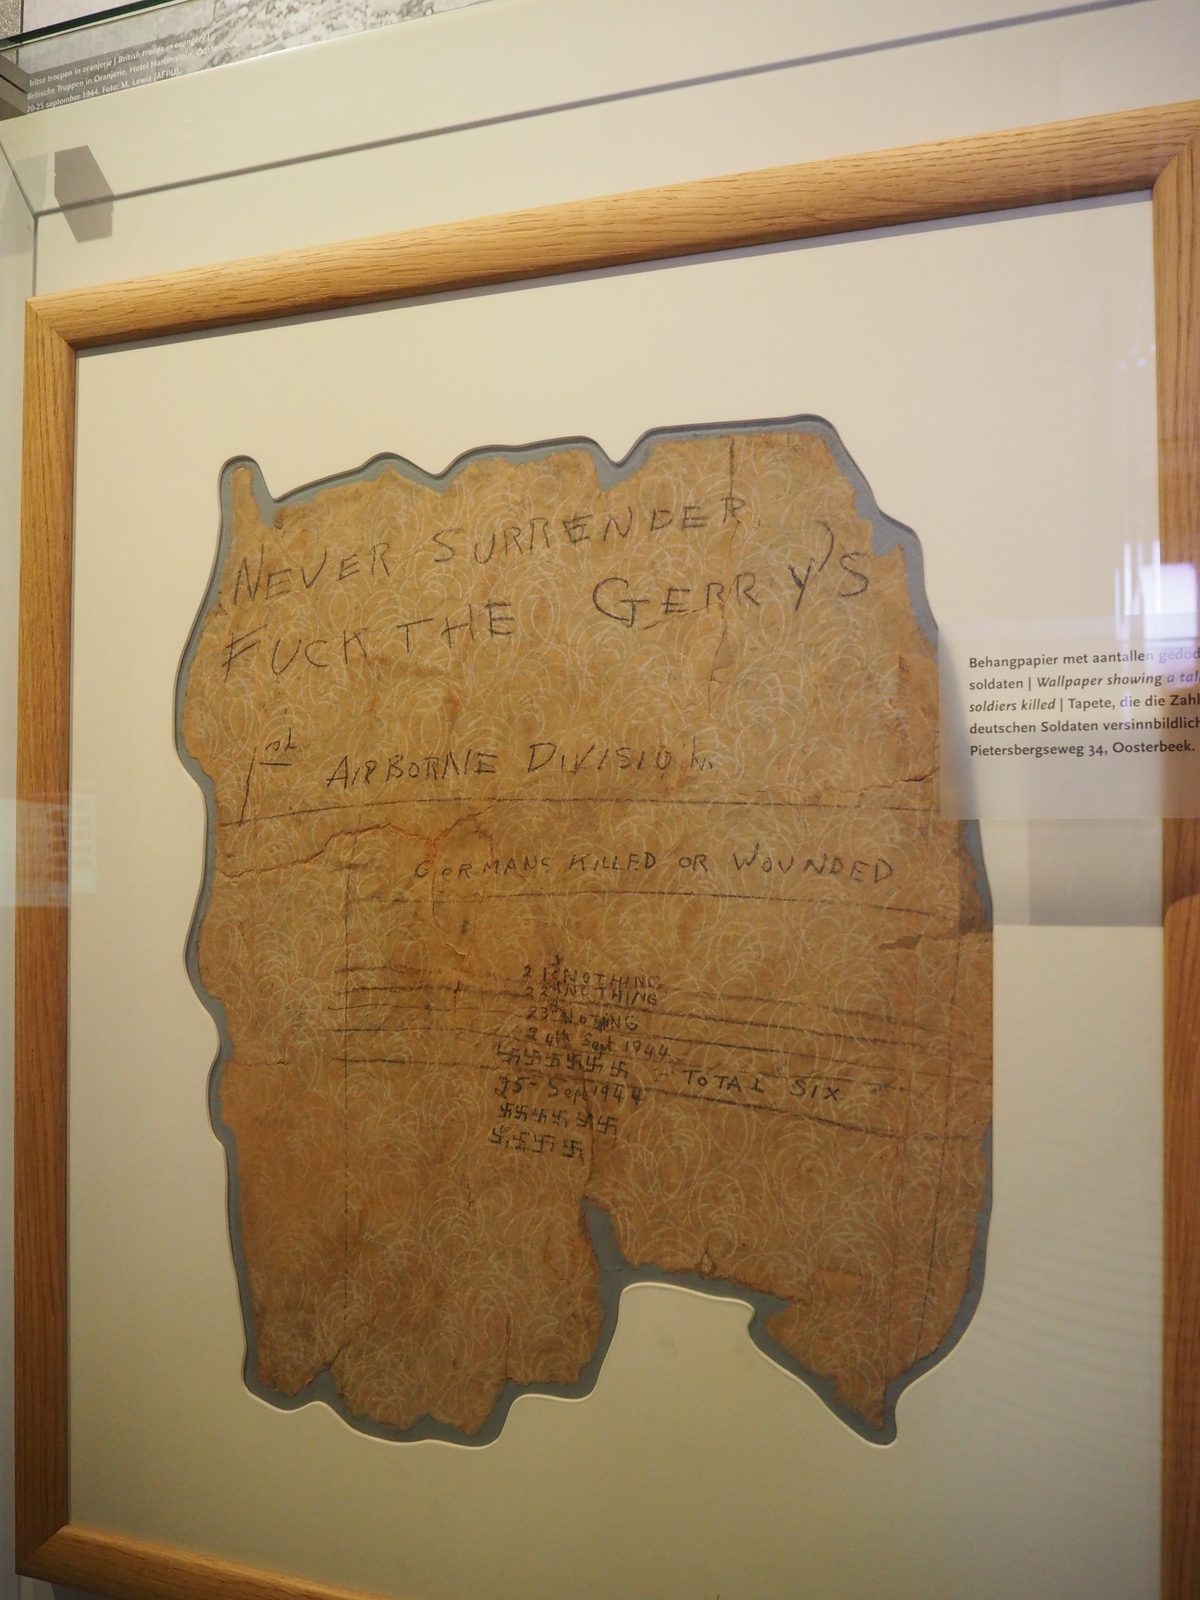 Britse troepen in oranjerie | British troops in orangery |
Britische Truppen in Oranjerie, Hotel Hartenstein, Oosterbeek,
20-25 september 1944. Foto: M. Lewis (AFPU).
NEVER SURRENDER
FUCK THE GERRY'S
1st AIRBORNE DIVISION.
GERMANS KILLED OR WOUNDED
21st NOTHING
22nd NOTHING
23rd NOTING
24th Sept 1944
卐卐卐卐卐卐 - TOTAL SIX
25 - Sept 1944
卐卐卐卐卐卐
卐卐卐卐
Behangpapier met aantallen gedod
soldaten | Wallpaper showing a tal
soldiers killed | Tapete, die die Zahl
deutschen Soldaten versinnbildlich
Pietersbergseweg 34, Oosterbeek.